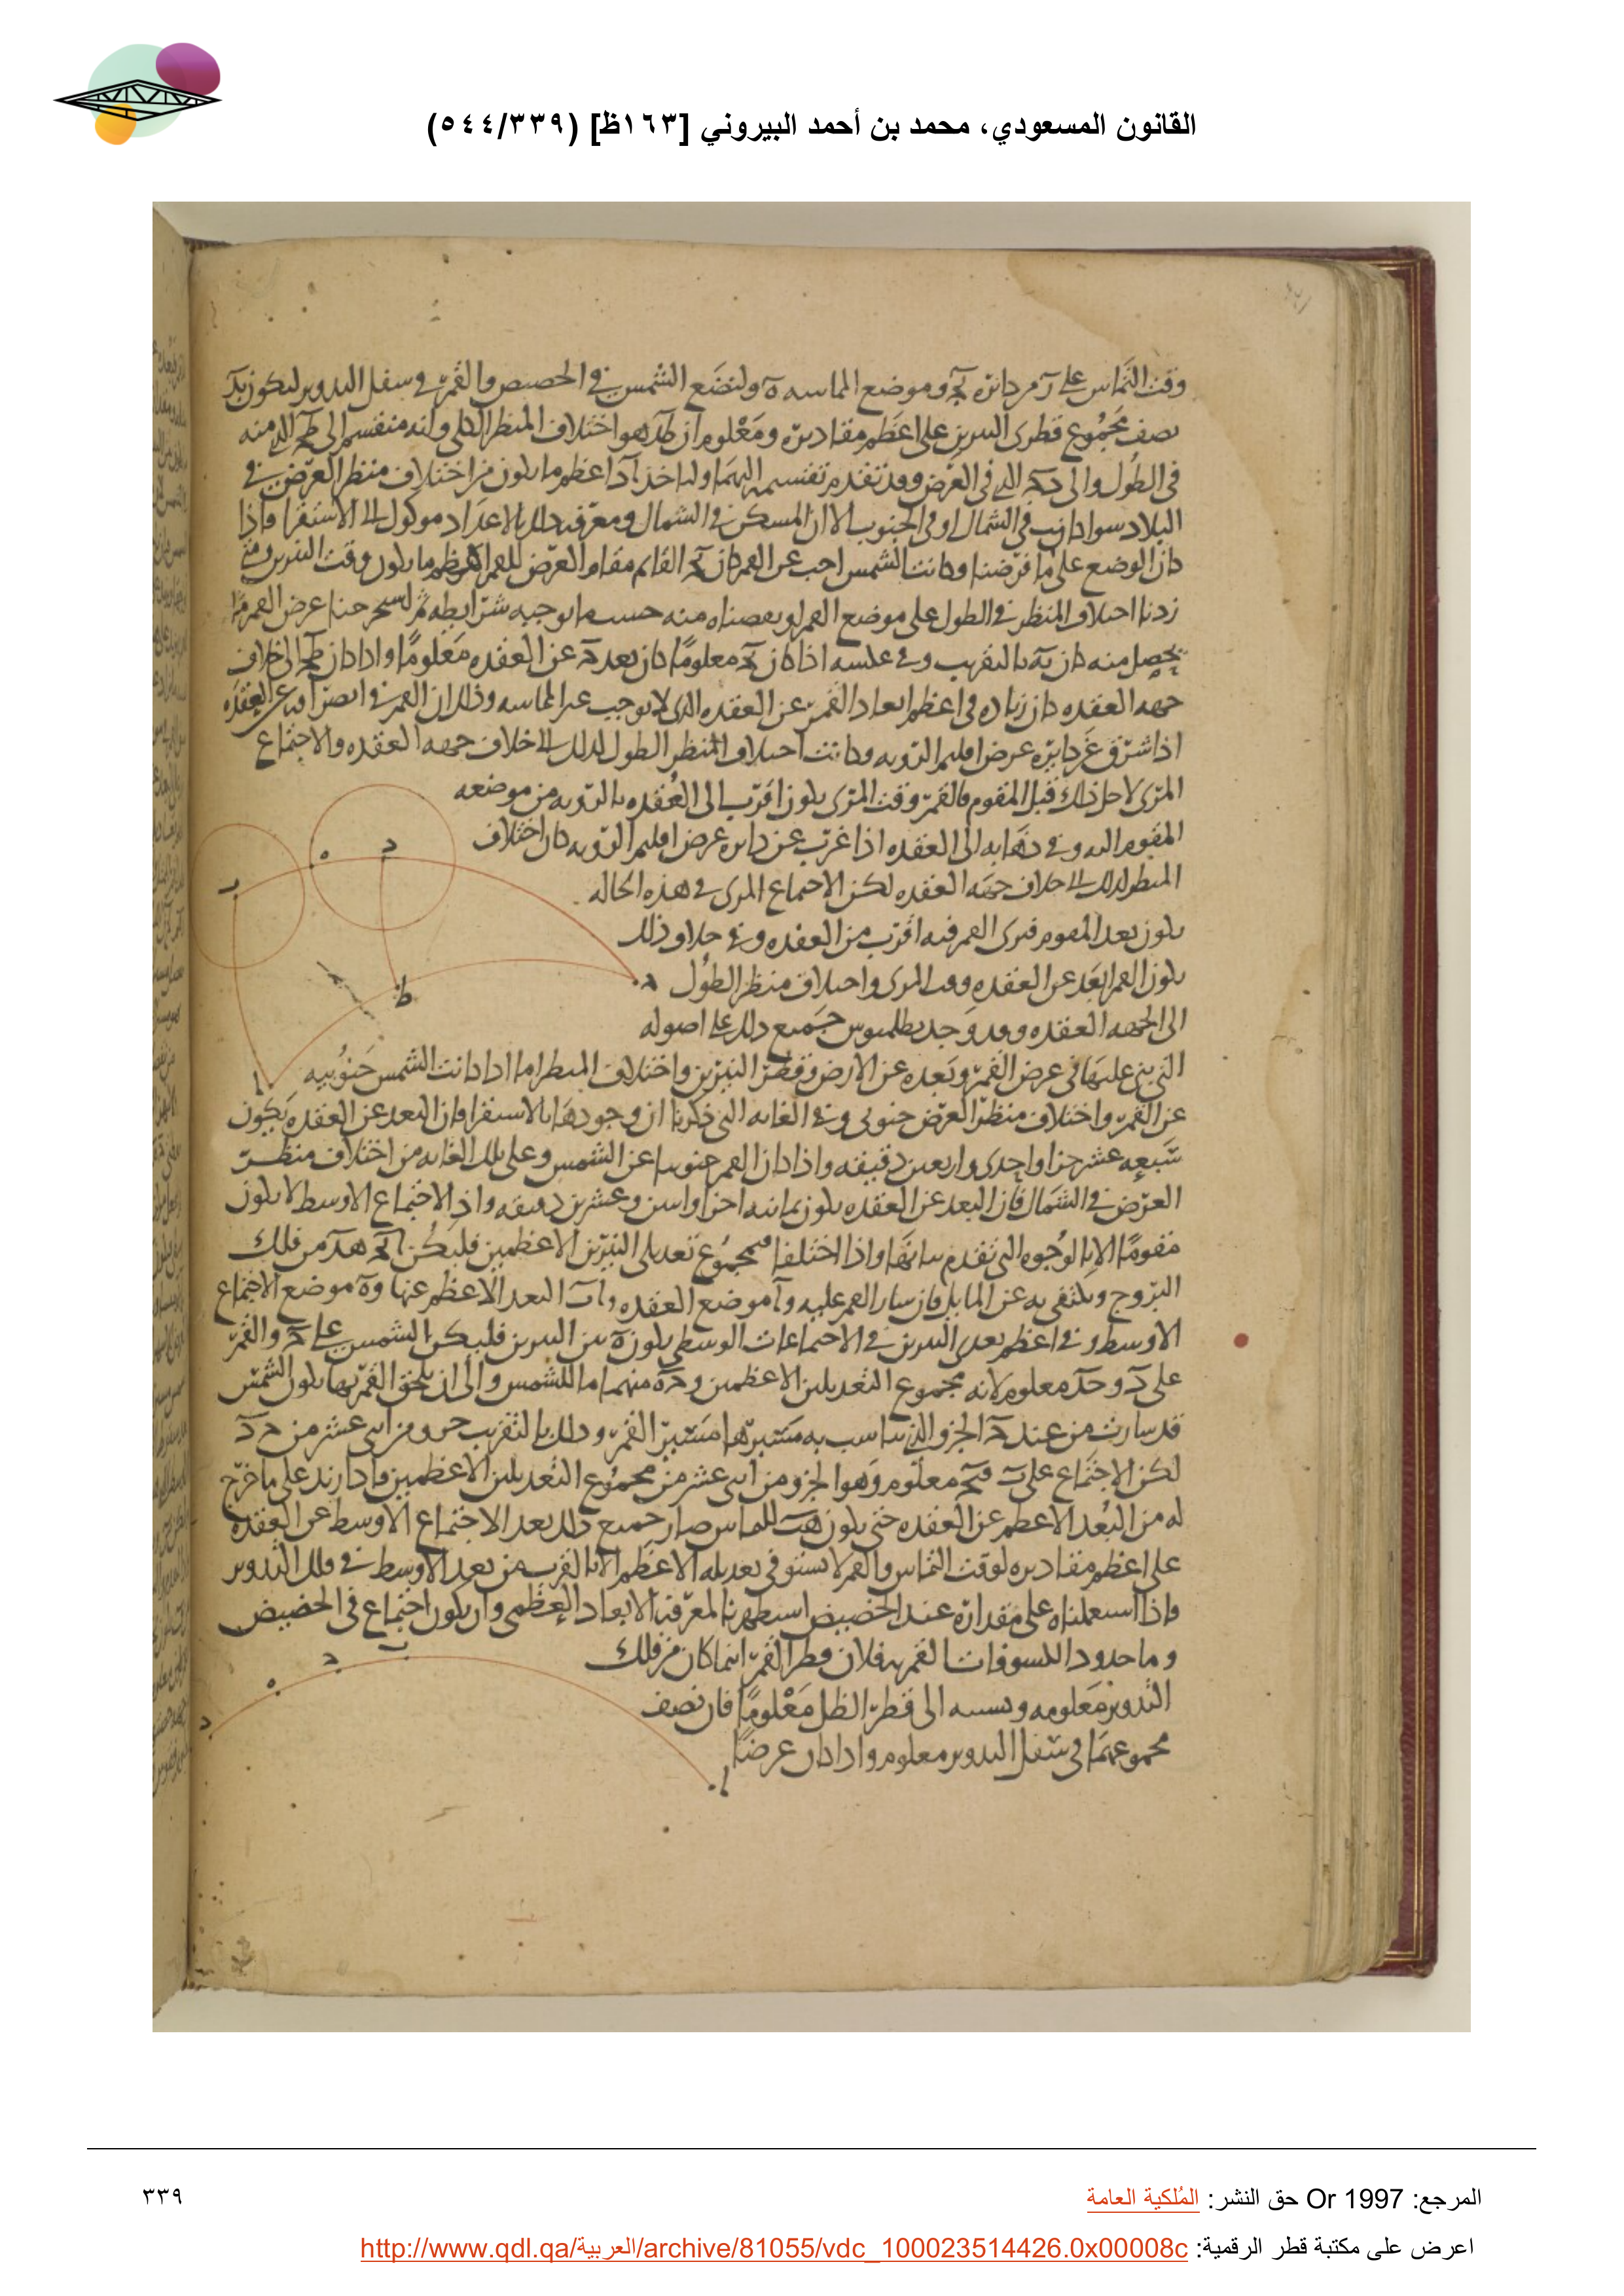 القانون المسعودي، محمد بن أحمد البيروني [١٦٣ظ] (٥٤٤/٣٣٩)
وقت التماس على د من دائرة وموضع الماسه ه ولنضع الشمس في الحضيض والقمر في سفل التدوير ليكون
نصف مجموع قطرى النيرين على اعظم مقاديره ومعلوم ان هو اختلاف المنظر الكلي وانه منقسم الى الذي منه
في الطول والى الذي في العرض وقد تقدم تقسيمه اليهما ولناخذ اعظم ما يكون من اختلاف منظر العرض في
البلاد سوا كانت في الشمال او في الجنوب الا ان المسكن في الشمال ومعرفه ذلك بالاعداد موكول الى الاستقرا فاذا
كان الوضع على ما فرضنا وكانت الشمس عن القمر كان القائم مقام العرض للقمر اعظم ما يكون وقت
زدنا اختلاف المنظر في الطول على موضع القمر او نقصناه منه حسب ما توجبه شرايطه ثم استخرجنا عرض القمر
يحصل منه كان بالتقريب وفي عكسه اذا كان معلوما كان بعد عن العقده معلوما واذا كان الى خلاف
جهه العقده كان زياده في اعظم ابعاد القمر عن العقده الذى لا يوجب غير الماسه وذلك ان القمر في انصرافه عن العقده
اذا شرق عن دايره عرض اقليم الرويه وكانت اختلاف المنظر الطول لذلك الى خلاف جهه العقده والاجتماع
المرى لاجل ذلك قبل المقوم فالقمر وقت المرى يكون اقرب الى العقده بالرويه من موضعه
المقوم وفي ذهابه الى العقده اذا غرب عن دايره عرض اقليم الرويه كان اختلاف
المنظر لذلك الى خلاف جهه العقده لكن الاجتماع المرى في هذه الحاله
يكون بعد المقوم فيرى القمر فيه اقرب من العقده وفي خلاف ذلك
يكون القمر ابعد عن العقده وقت المرى واختلاف منظر الطول
الى الجهه العقده وقد وجد بطلميوس جميع ذلك على اصوله
التي بنى عليها في عرض القمر وبعده عن الارض وقطر النيرين واختلاف المنظر اما اذا كانت الشمس جنوبيه
عن القمر واختلاف منظر العرض جنوبى وفي الغايه التي ذكرنا ان وجودها بالاستقرا فان البعد عن العقده يكون
سبعه عشر جزا واحدى واربعين دقيقه واذا كان القمر جنوبيا عن الشمس وعلى تلك الغايه من اختلاف منظر
العرض في الشمال فان البعد عن العقده يكون ثمانيه اجزا واثنين وعشرين دقيقه واذ الاجتماع الاوسط لا يكون
مقوما الا بالوجوه التي تقدم بيانها واذا اختلفا فبمجموع تعديلى النيرين الاعظمين فليكن من فلك
البروج ويكتفى به عن المايل فان سار القمر عليه و ا موضع العقده و ا ب البعد الاعظم عنها و ه موضع الاجتماع
الاوسط وفي اعظم بعدى النيرين في الاجتماعات الوسطى يكون ه بين النيرين فليكن الشمس على ح والقمر
على د و ح د معلوم لانه مجموع التعديلين الاعظمين و ح ه منهما ما للشمس والى ان يلحق القمر بها يكون الشمس
قد سارت من عند ح الجزو الذي يناسب به مسيرها مسير القمر وذلك بالتقريب جزو من اثنى عشر من ح د
لكن الاجتماع على ب معلوم وهو الجزو من اثنى عشر من مجموع التعديلين الاعظمين فاذا زيد على ما خرج
له من البعد الاعظم عن العقده حتى يكون للماس صار جميع ذلك بعد الاجتماع الاوسط عن العقده
على اعظم مقاديره لوقت التماس والقمر لا يستوفى تعديله الاعظم الا بالقرب من بعد الاوسط في فلك التدوير
واذا استعملناه على مقداره عند الحضيض استظهرنا لمعرفه الابعاد العظمى وان يكون اجتماع في الحضيض
وما حدود الكسوفات القمريه فلان قطر القمر اينما كان من فلك
التدوير معلومه ونسبته الى قطر الظل معلوما فان نصف
مجموعهما في سفل التدوير معلوم واذا كان عرضا
د
ه
ب
ح
ط
ا
ب
د
ه
ح
ا
المرجع: Or 1997 حق النشر: المُلكية العامة
٣٣٩
اعرض على مكتبة قطر الرقمية: http://www.qdl.qa/العربية/archive/81055/vdc_100023514426.0x00008c